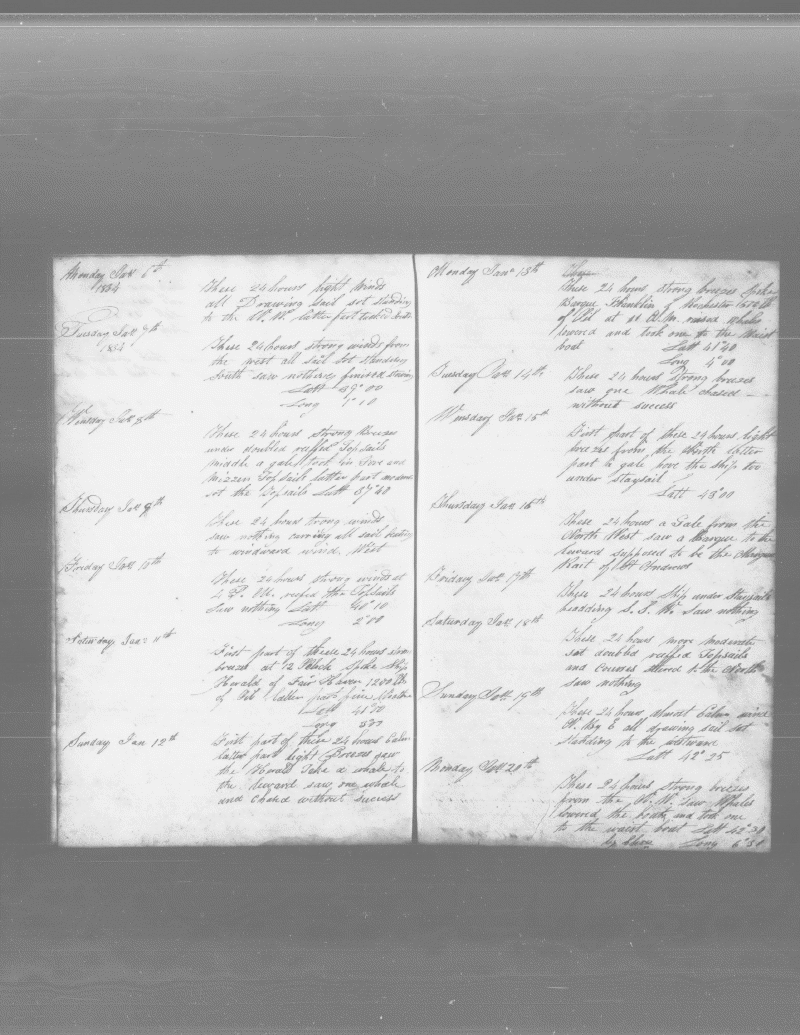 Monday Jan 6th
1834
These 24 hours light winds
all Drawing sail set standing
to the latter part
Tuesday Jan 7th
1834
These 24 hours strong winds from
the west all sail set standing
South saw nothing
Latt 39°00
Long 1°10
Wensday Jan 8th
These 24 hours strong Breeses
under doubled reeffed Topsails
middle a gale took in Fore and
Mizzen Topsails latter part
set the Topsails Latt 37°40
Thursday Jan 9th
These 24 hours trong winds
saw nothing carring all sail
to windward wind West
Friday Jan 10th
These 24 hours strong winds at
4 P. M. reefed the Topsails
Saw nothing Latt 40°10
Long 2°00
Saturday Jan 11th
First part of these 24 hours
breeses at 12 Oclock Spoke Ship
Herald of Fair Haven 1200 lb
of Oil latter part fine
Latt 41°
Long
Sunday Jan 12th
First part of these 24 hours Calm
latter part light Breeses saw
the Herald Take a whale to
the leeward saw one whale
and chased without success
Monday Jan 13th
These
these 24 hours strong breeses Spoke
Barque Franklin of Rochester
of Oil at 11 A.M. raised whales
lowered and took one to the Waist
boat Latt 41°40
Long 4°00
Tuesday Jan 14th
These 24 hours strong breeses
saw one Whale chased
without success
Wensday Jan 15th
First part of these 24 hours light
breeses from the North latter
part a gale hove the ship too
under staysail
Latt 43°00
Thursday Jan 16th
These 24 hours a Gale from the
North West saw a Barque to the
leward supposed to be the
Friday Jan 17th
These 24 hours Ship under Staysails
headding S. S. W. Saw nothing
Saturday Jan 18th
These 24 hours more moderate
set doubled reeffed Topsails
and Courses steered to the North
saw nothing
Sunday Jan 19th
These 24 hours almost Calm wind
N. by E all drawing sail set
steering to the westward
Latt 42°25
Monday Jan 20th
These 24 hours strong breeses
from the saw Whales
lowered the boats and took one
to the waist boat Latt 42°30
Long 6°